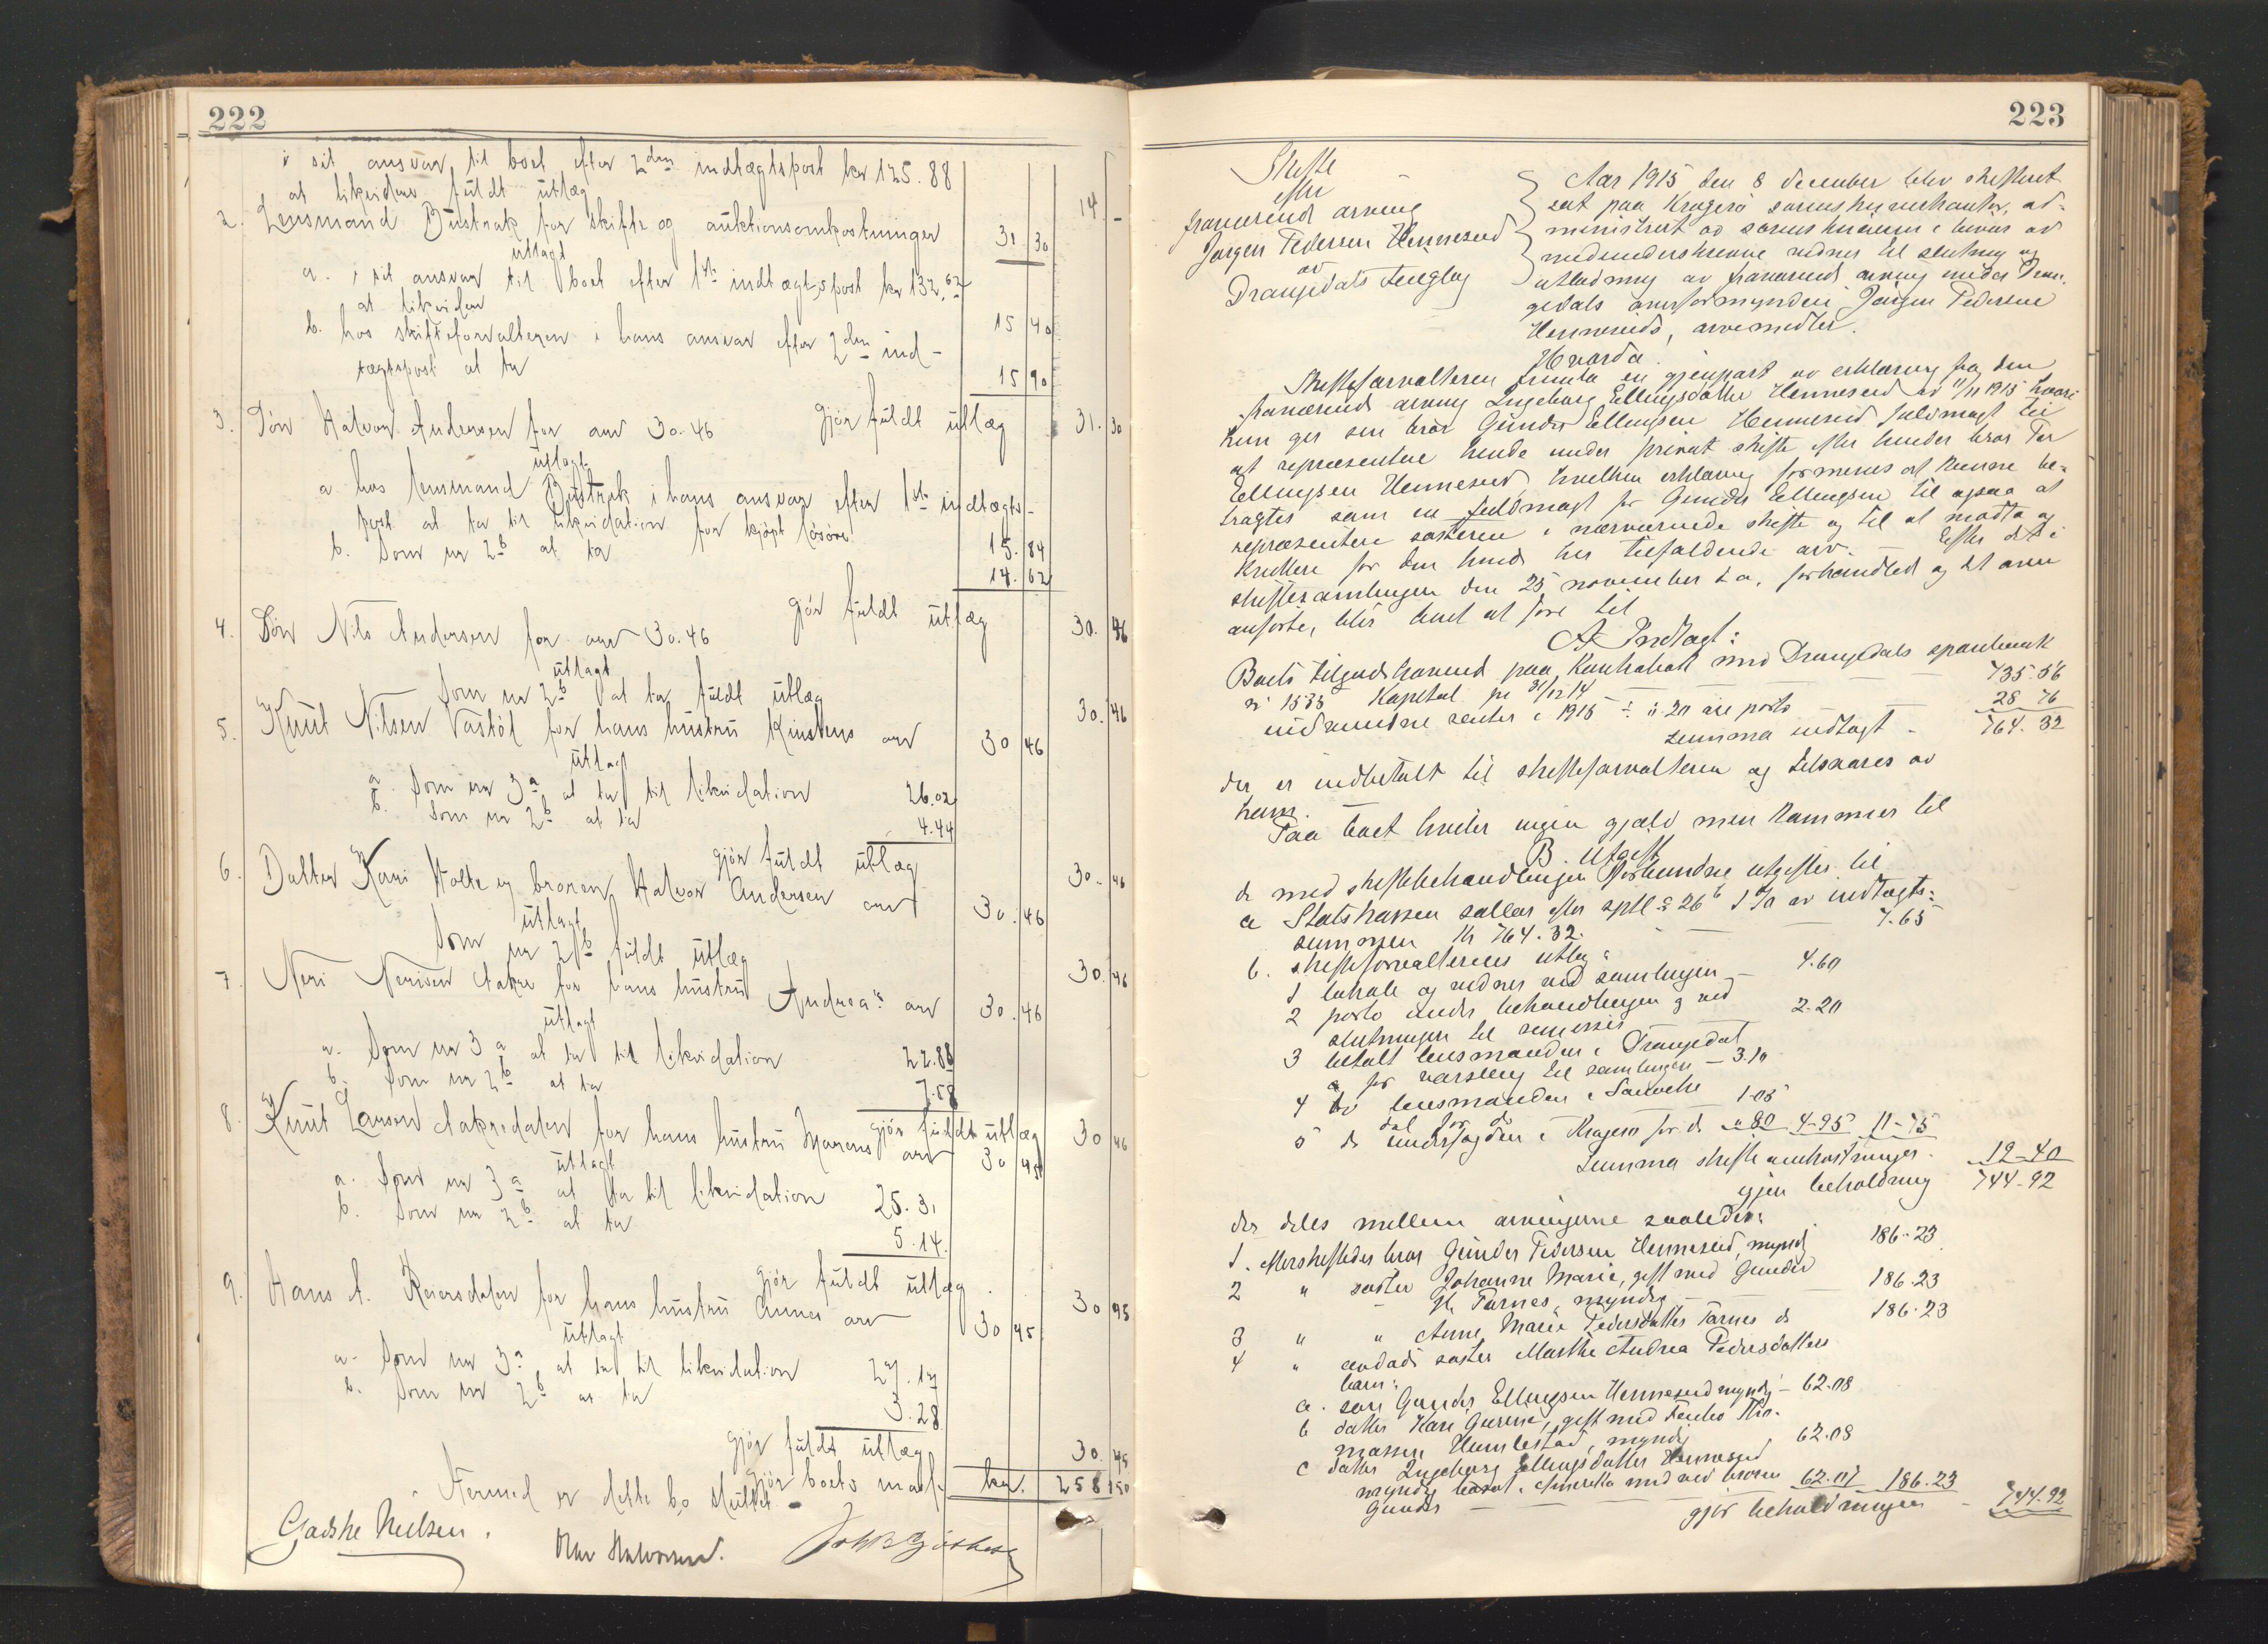 222
i sit ansvar til boet efter 2den indtægtspost kr 125.88
at likvidere fuldt utlæg 14 -
2. Lensmand Bustrak for skifte og auktionsomkostninger 31 30
utlagt
a. i sit ansvar til boet efter 1ste indtægtspost kr 132.62
at likvidere 15 40
b. hos skifteforvalteren i hans ansvar efter 2den ind-
tægtspost at ta 15 90
gjør fuldt utlæg 31. 30
3. Søn Halvor Andersen for arv 30.46
utlagt
a. hos lensmand Bustrak i hans ansvar efter 1ste indtægts-
post at ta til likvidation for kjøpt løsøre 15.84
b. Som nr 2b at ta 14.62
gjør fuldt utlæg 30. 46
4. Søn Nils Andersen for arv 30.46
utlagt
Som nr 2b at ta fuldt utlæg 30. 46
5. Knut Nilsen Vastøl for hans hustru Kirstens arv 30 46
utlagt
a. Som nr 3a at ta til likvidation 26.02
b. Som nr 2b at ta 4.44
gjør fuldt utlæg 30. 46
6. Datter Kari Holte og broren Halvor Andersen arv 30. 46
utlagt
Som nr 2b fuldt utlæg 30. 46
7. Neri Nerisen Aakre for hans hustru Andrea's arv 30. 46
utlagt
a. Som nr 3a at ta til likvidation 22.88
b. Som nr 2b at ta 7.58
gjør fuldt utlæg 30 46
8. Knut Larsen Aakredalen for hans hustru Marens arv 30 45
utlagt
a. Som nr 3a at ta til likvidation 25.31
b. Som nr 2b at ta 5.14
gjør fuldt utlæg 30 45
9. Hans A. Reiersdalen for hans hustru Annes arv 30 45
utlagt
a. Som nr 3a at ta til likvidation 27.17
b. Som nr 2b at ta 3.28
gjør fuldt utlæg 30. 45
gjør boets masse kr. 258 50
Hermed er dette bo sluttet
Gadske Nielsen. Olav Halvorsen.
223
Skifte
efter
fraværende arving
Jørgen Pedersen Henneseid
av
Drangedals tinglag
Aar 1915 den 8 december blev skifteret
sat paa Kragerø sorenskriverkontor, ad-
ministrert av sorenskriveren i bivær av
medunderskrevne vidner til slutning og
utlodning av fraværende arving under Dran-
gedals overformynderi Jørgen Pedersen
Henneseids, arvemidler.
Hvorda
Skifteforvalteren fremla en gjenpart av erklæring fra den
fraværende arving Ingeborg Ellingsdatter Henneseid av 11/11 1915 hvori
hun gir sin bror Gunder Ellingsen Henneseid fuldmagt til
at repræsentere hende under privat skifte efter hendes bror Tor
Ellingsen Henneseid hvilken erklæring formenes at kunne be-
tragtes som en fuldmagt for Gunder Ellingsen til ogsaa at
repræsentere søsteren i nærværende skifte og til at motta og
kvittere for den hende her tilfaldende arv. — Efter det i
skiftesamlingen den 25 november d.a. forhandlede og det oven
anførte, blir boet at føre til
A Indtægt:
Boets tilgodehavende paa Kontrabok med Drangedals sparebank
nr 1535 Kapital pr 31/12 14 735.56
indvundne renter i 1915 ÷ 20 øre porto 28 76
Summa indtægt 764. 32
der er indbetalt til skifteforvalteren og tilsvares av
ham.
Paa boet hviler ingen gjæld men kommer til
B. Utgift
de med skiftebehandlingen forbundne utgifter til
a Statskassen sallær efter sptl § 26b 1% av indtægts-
summen kr 764.32. 7.65
b. skifteforvalterens utlæg:
1 lokale og vidner ved samlingen 4.60
2 porto under behandlingen og ved
slutningen til remisser 2.20
3 betalt lensmanden i Drangedal
for varsling til samlingen 3.10
4 do lensmanden i Sauwhe
dal for do 1.05
5 do underfogden i Kragerø for do 0.80 4-95 11-75
Summa skifteomkostninger 19-40
igjen beholdning 744-92
der deles mellem arvingerne saaledes:
1. Morskiftedes bror Gunder Pedersen Henneseid, myndig 186.23
2 " søster Johanne Marie, gift med Gunder
H. Tørnes, myndig 186.23
3 " " Anne Marie Pedersdatter Tørnes do 186.23
4 " avdøde søster Marthe Andrea Pedersdatters
barn:
a. søn Gunder Ellingsen Henneseid myndig 62.08
b datter Kari Gurine, gift med Tho-
massen Humlestad, myndig 62.08
c datter Ingeborg Ellingsdatter Henneseid
myndig bosat i Amerika med ved broren
Gunder 62.07 186.23
gjør beholdningen 744.92